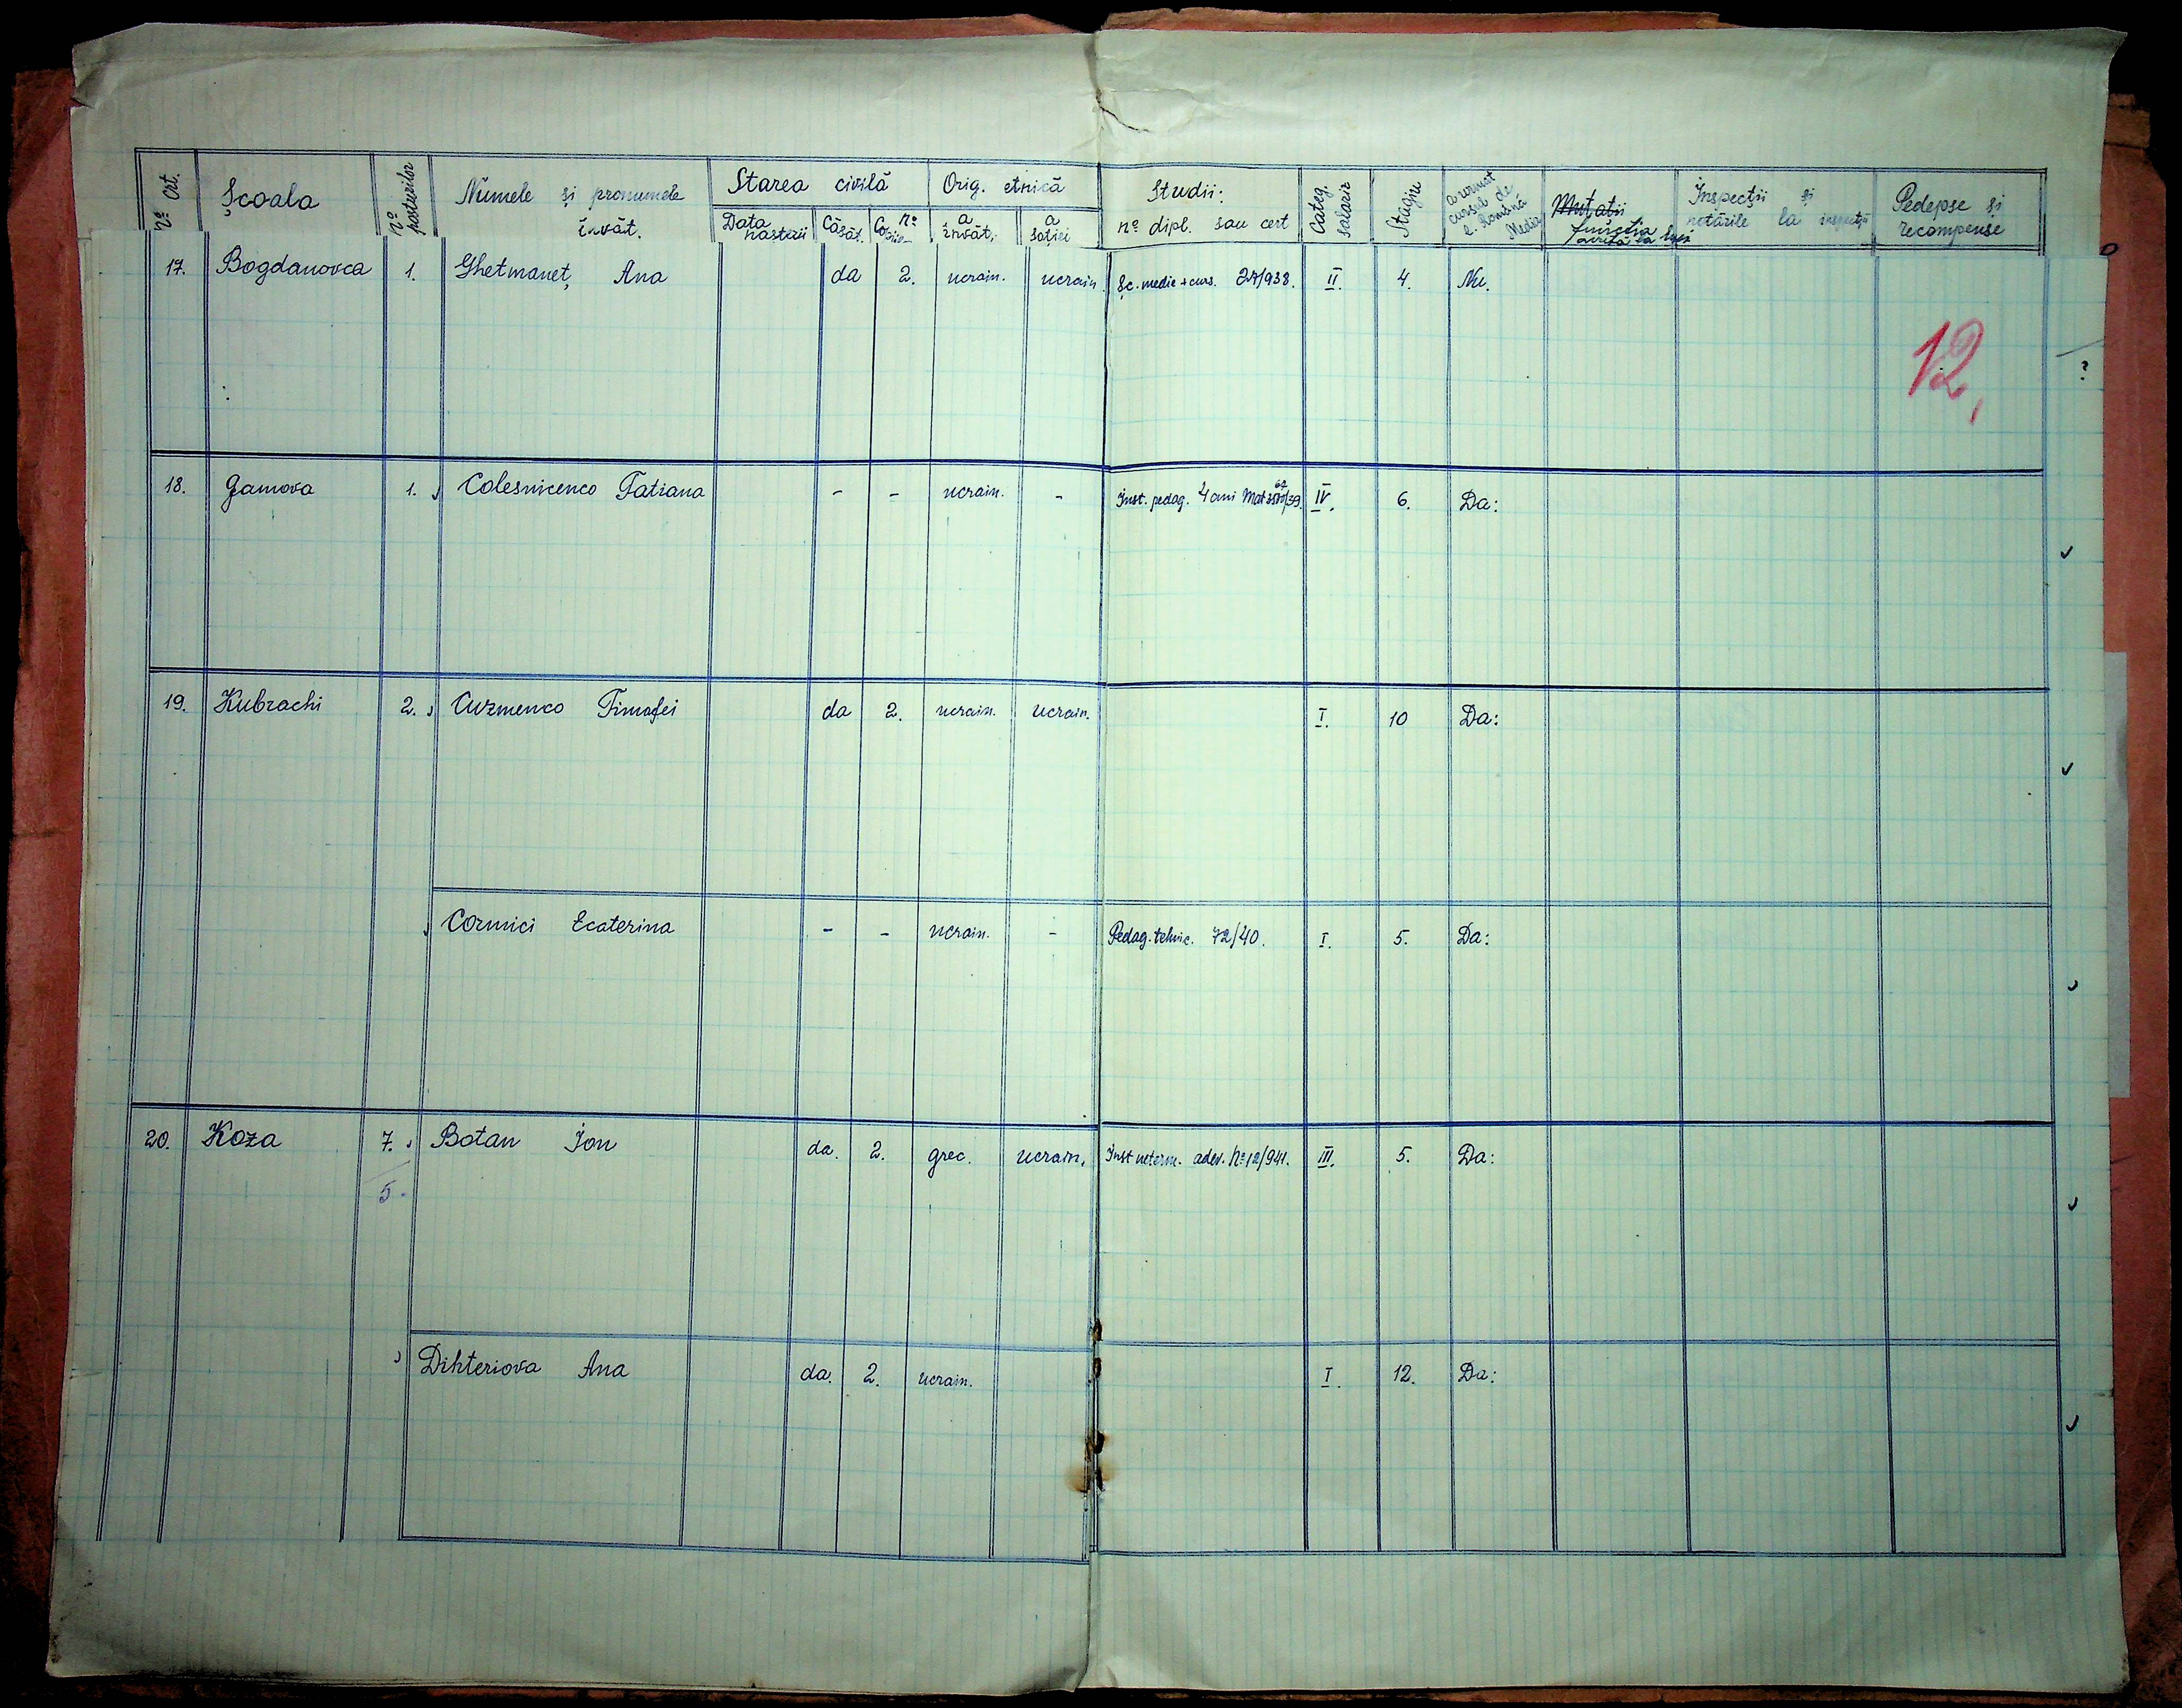 Nº Crt. Școala Nº posturilor Numele și pronumele învăt. Starea civilă Orig. etnică Studii: nº dipl. sau cert Categ. salariz Stagiu a urmat cursul de l. Română Mutatii funcția Inspecții și notările la inspecții Pedepse și recompense
Data nasterii Căsăt. nº a învăt. a soției
17. Bogdanovca 1. Ghetmaneț Ana da 2. ucrain. ucrain. Șc. medie + curs. 27/938. II. 4. Nu.
12,
?
18. Gamova 1. Colesnicenco Tatiana - - ucrain. - Inst. pedag. 4 ani IV. 6. Da:
19. Kubrachi 2. Cuzmenco Timofei da 2. ucrain. ucrain. I. 10 Da:
Cormici Ecaterina - - ucrain. - Pedag. tehnic. 72/40. I. 5. Da:
20. Koza 7. Botan Ion da. 2. grec. ucrain. Inst neterm. adev. Nº 12/941. III. 5. Da:
5.
Dihteriova Ana da. 2. ucrain. I. 12. Da: